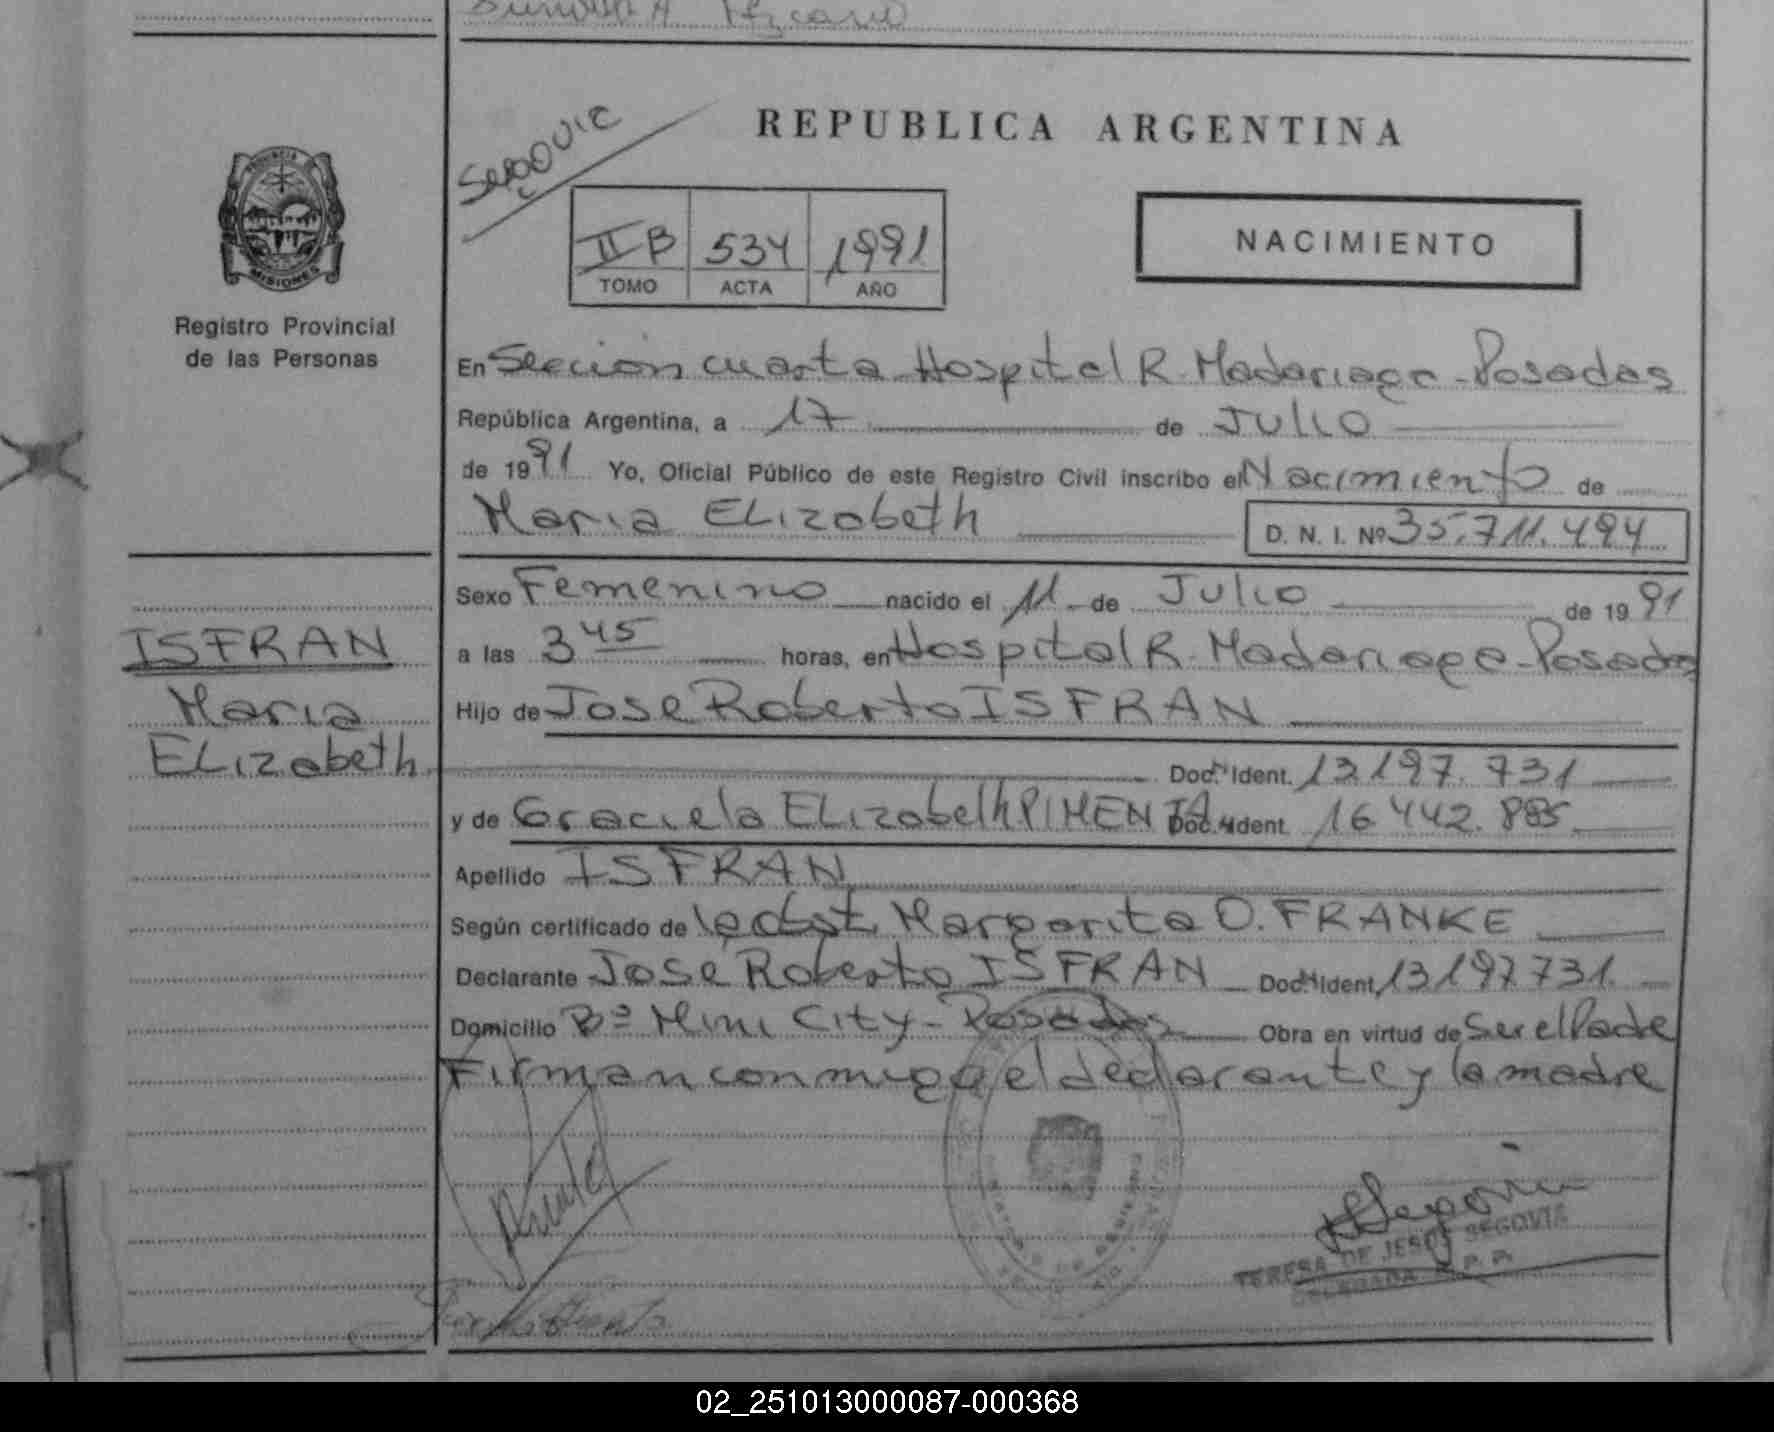 REPUBLICA ARGENTINA
II B 534 1991
TOMO ACTA AÑO
NACIMIENTO
PROVINCIA
MISIONES
Registro Provincial
de las Personas
En Seccion cuarta Hospital R. Madariaga - Posadas
República Argentina, a 17 de Julio
de 1991 Yo, Oficial Público de este Registro Civil inscribo el Nacimiento de
Maria ELizabeth D. N. I. Nº 35.711.494
ISFRAN
Maria
ELizabeth
Sexo Femenino nacido el 11 de Julio de 1991
a las 3 45 horas, en Hospital R. Madariaga - Posadas
Hijo de Jose Roberto ISFRAN
Doc. Ident. 13197.731
y de Graciela ELizabeth PIMENTA Doc. Ident. 16442.885
Apellido ISFRAN
Según certificado de la obst. Margarita O. FRANKE
Declarante Jose Roberto ISFRAN Doc. Ident. 13197731
Domicilio Bº Mini City - Posadas Obra en virtud de Ser el Padre
Firman conmigo el declarante y la madre
TERESA DE JESUS SEGOVIA
DELEGADA R. P. P.
02_251013000087-000368